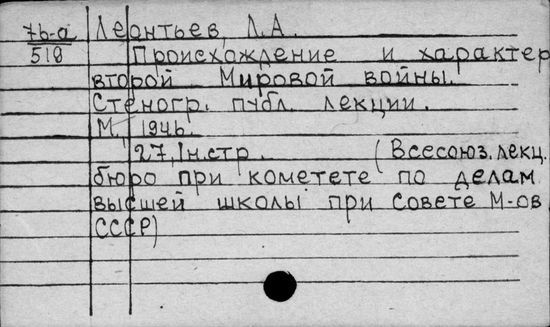 76-а Леонтьев, Л.А.
510 Происхождение и характер
второй Мировой войны.
Стеногр. публ. лекции.
М., 1946.
27, 1н.стр. (Всесоюз. лекц.
бюро при кометете по делам
высшей школы при Совете М-ов
СССР)